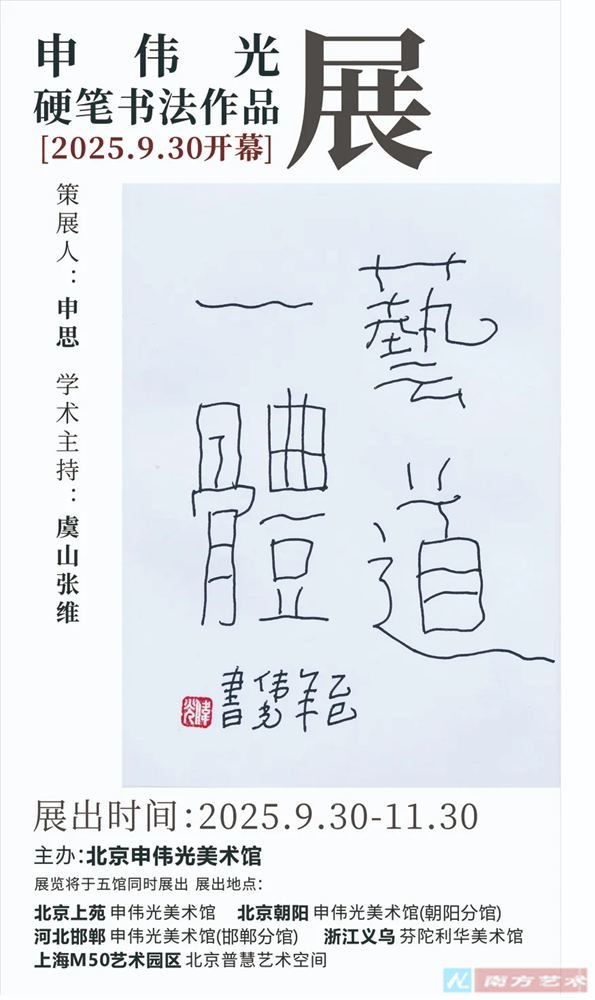 申伟光
硬笔书法作品
展
[2025.9.30开幕]
策展人：申思 学术主持：虞山张维
藝道
一體
乙巳年
伟光
書
展出时间:2025.9.30-11.30
主办:北京申伟光美术馆
展览将于五馆同时展出 展出地点:
北京上苑 申伟光美术馆 北京朝阳 申伟光美术馆(朝阳分馆)
河北邯郸 申伟光美术馆(邯郸分馆) 浙江义乌 芬陀利华美术馆
上海M50艺术园区 北京普慧艺术空间
南方艺术